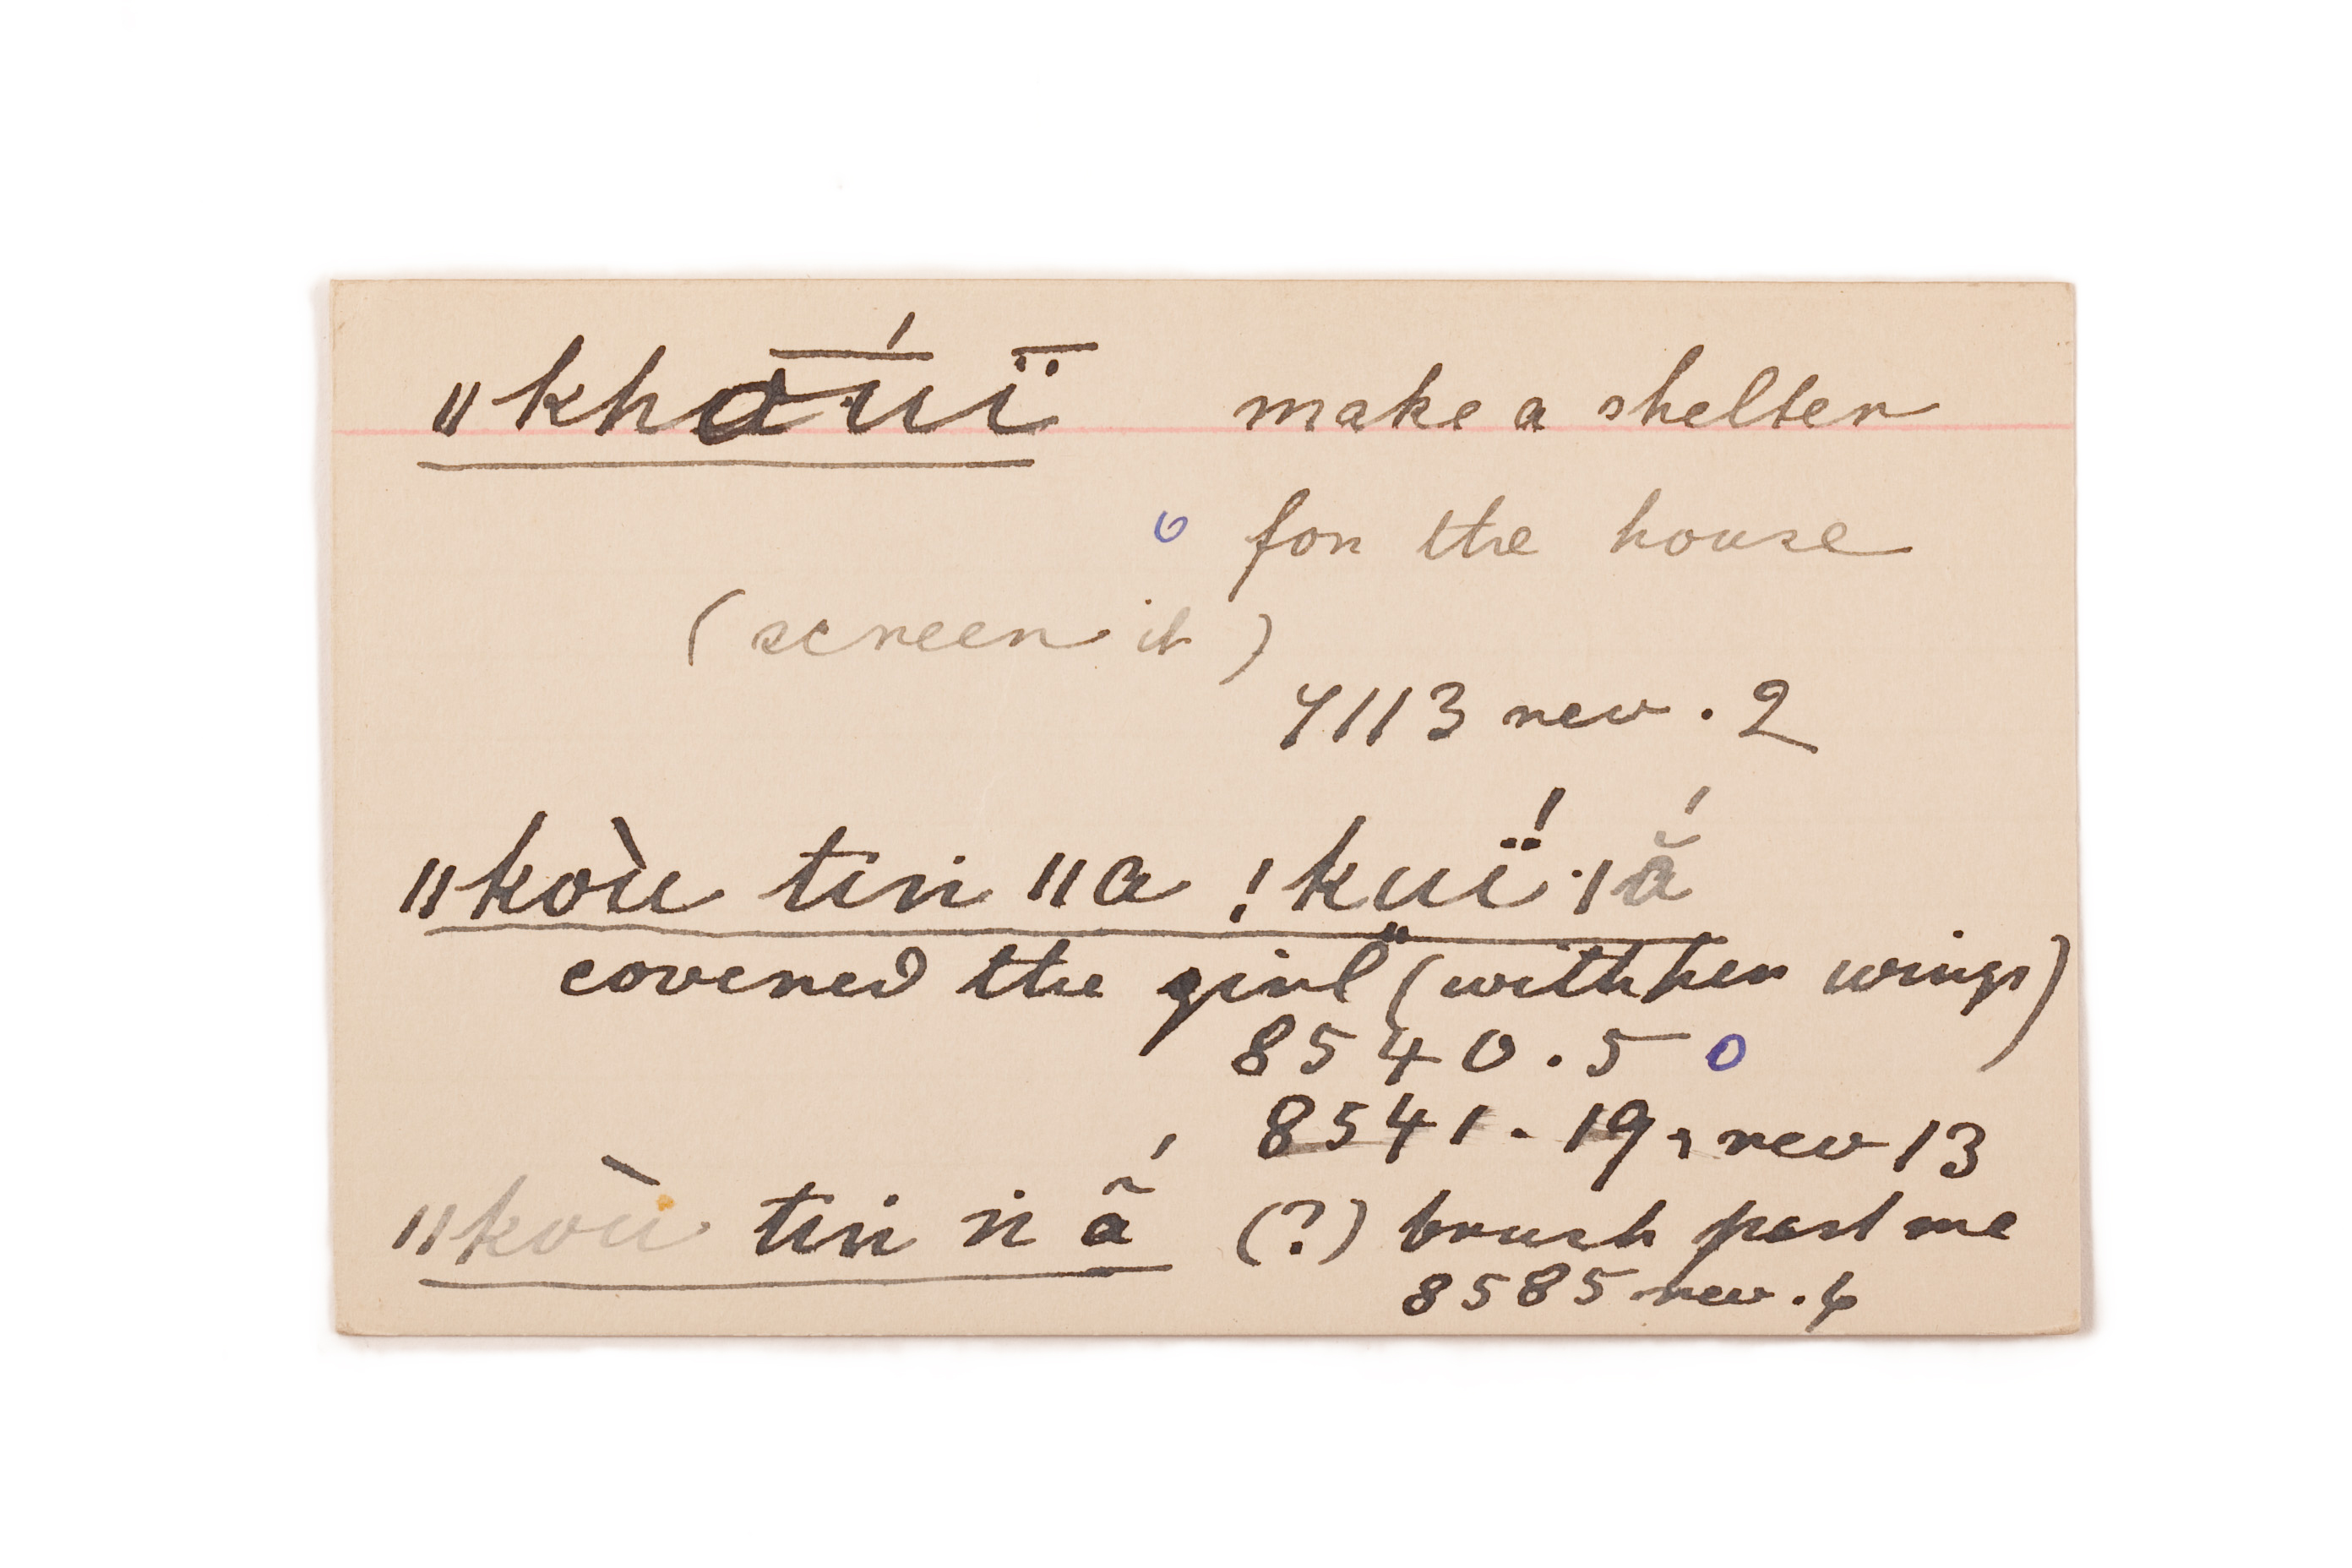 ǁkhā́uï̄ make a shelter
o for the house
(screen it)
7113 rev. 2
ǁkoù tın ǁa !kuḯ ·ǀắ
covered the girl" (with her wings)
8540.5 o
8541.19, rev 13
ǁkoù tın n ã́ (?) brush past me
8585 rev. 6